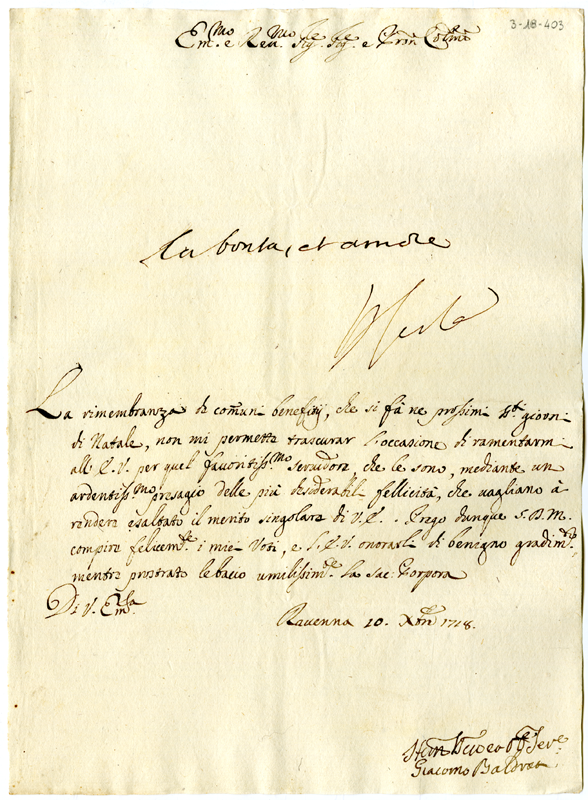 3-18-403
Em.mo e Reu.mo Sig.re Sig.re e Pron Col.mo
la bonta, et amore
La rimembranza de comuni beneficij, che si fà ne prossimi S.ti giorni
di Natale, non mi permette trascurar l'occasione di ramentarmi
all E.V. per quel favoritiss.mo seruidore, che le sono, mediante un
ardentiss.mo presagio delle più desiderabili fellicità, che uagliano à
rendere esaltato il merito singolare di V.E. Prego dunque S.D.M.
compire felicem.te i miei Voti, e l'E.V. onorarli di benigno gradim.to
mentre prostrato le bacio umilissim.te la Sac: Porpora
Di V. Em.za
Ravenna 10. Xbre 1718.
Giacomo